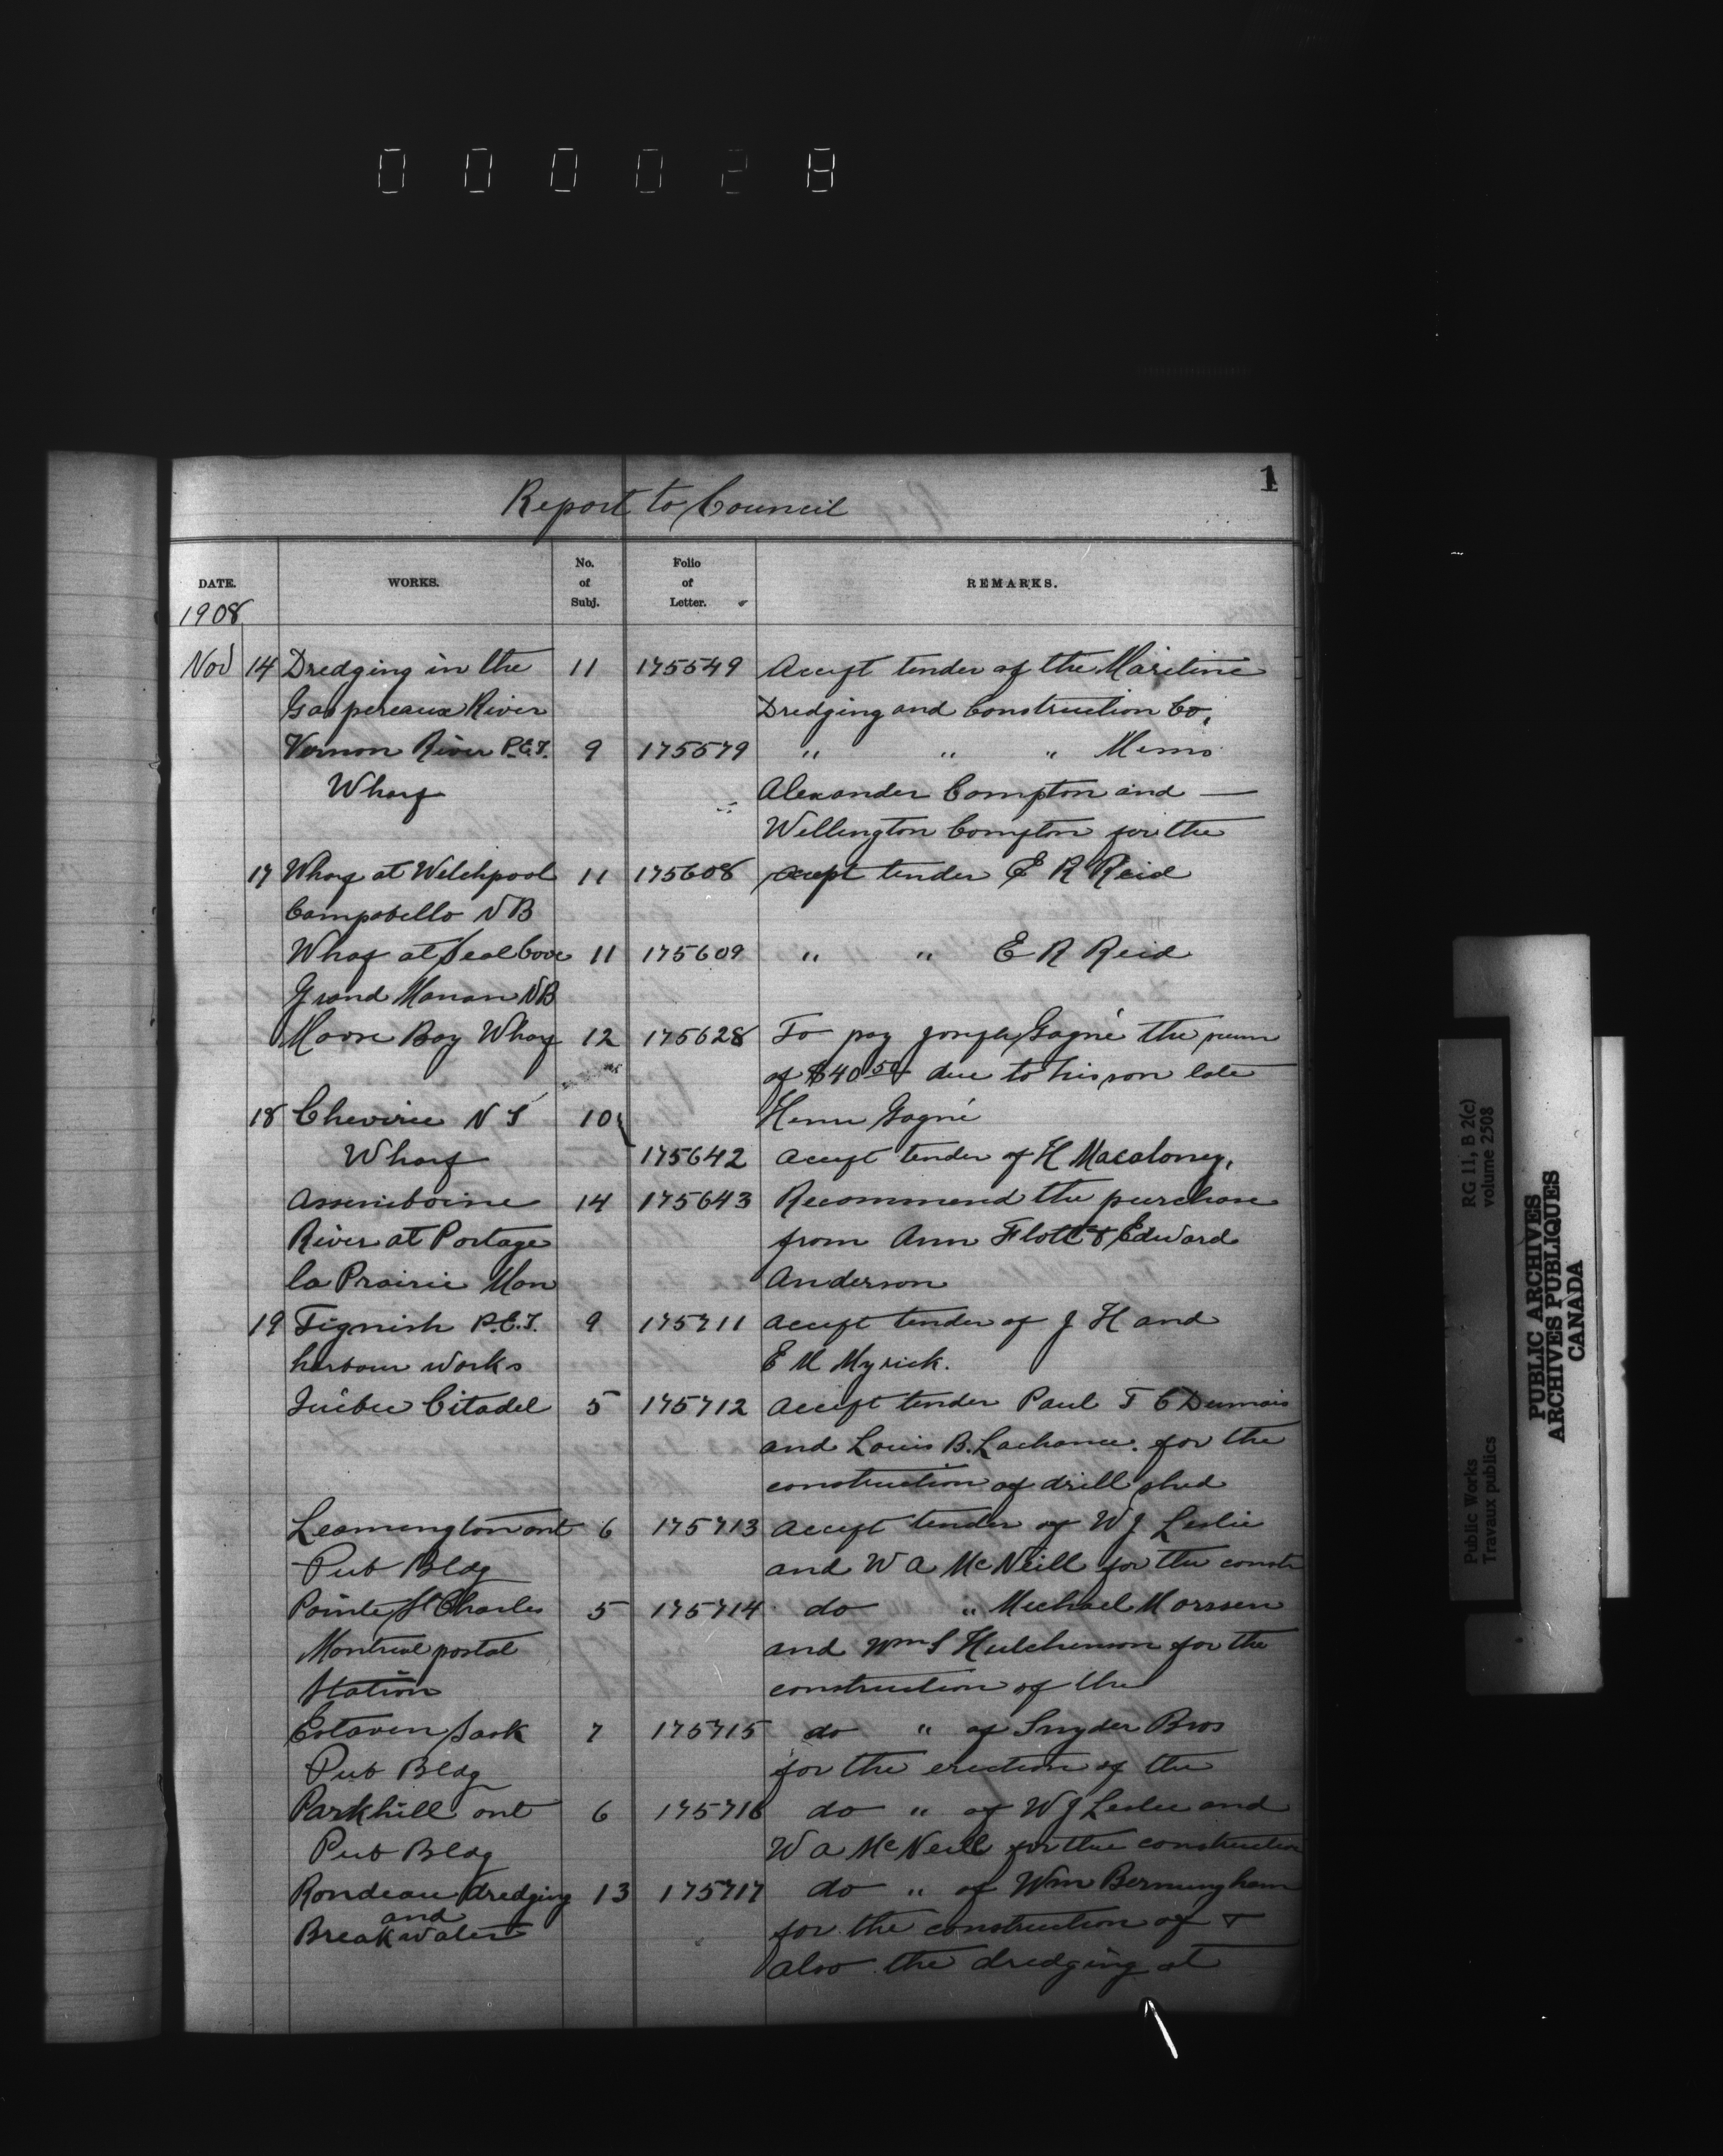 000028
1
Report to Council
DATE. WORKS. No. of Subj. Folio of Letter. REMARKS.
1908
Nov 14 Dredging in the 11 175549 Accept tender of the Maritime
Gaspereaux River Dredging and Construction Co.
Vernon River P.E.I. 9 175579 " " " Mems
Wharf Alexander Compton and —
Wellington Compton for the
17 Wharf at Welchpool 11 175608 accept tender E R Reid
Campobello N B
Wharf at Seal Cove 11 175609 " " E R Reid
Grand Manan N B
Moore Bay Wharf 12 175628 To pay Joseph Gagné the sum
of $40 50 due to his son late
18 Cheverie N S 10 Henri Gagné
Wharf 175642 accept tender of H Macaloney.
Assiniboine 14 175643 Recommend the purchase
River at Portage from Ann Flott & Edward
la Prairie Man Anderson
19 Tignish P.E.I. 9 175711 accept tender of J H and
harbour works E M Myrick.
Québec Citadel 5 175712 accept tender Paul T C Dumais
and Louis B. Lachance. for the
construction of drill shed
Leamington ont 6 175713 accept tender of W J Leslie
Pub Bldg and W A McNeill for the constr
Pointe St Charles 5 175714 do " Michael Morssen
Montreal postal and Wm S Hutchinson for the
Station construction of the
Estaven Sask 7 175715 do " of Snyder Bros
Pub Bldg for the erection of the
Parkhill ont 6 175716 do " of W J Leslie and
Pub Bldg W A McNeill for the construction
Rondeau dredging 13 175717 do " of Wm Bermingham
and
Breakwater for the construction of +
also the dredging at
Public Works
Travaux publics
RG 11, B 2(c)
volume 2508
PUBLIC ARCHIVES
ARCHIVES PUBLIQUES
CANADA